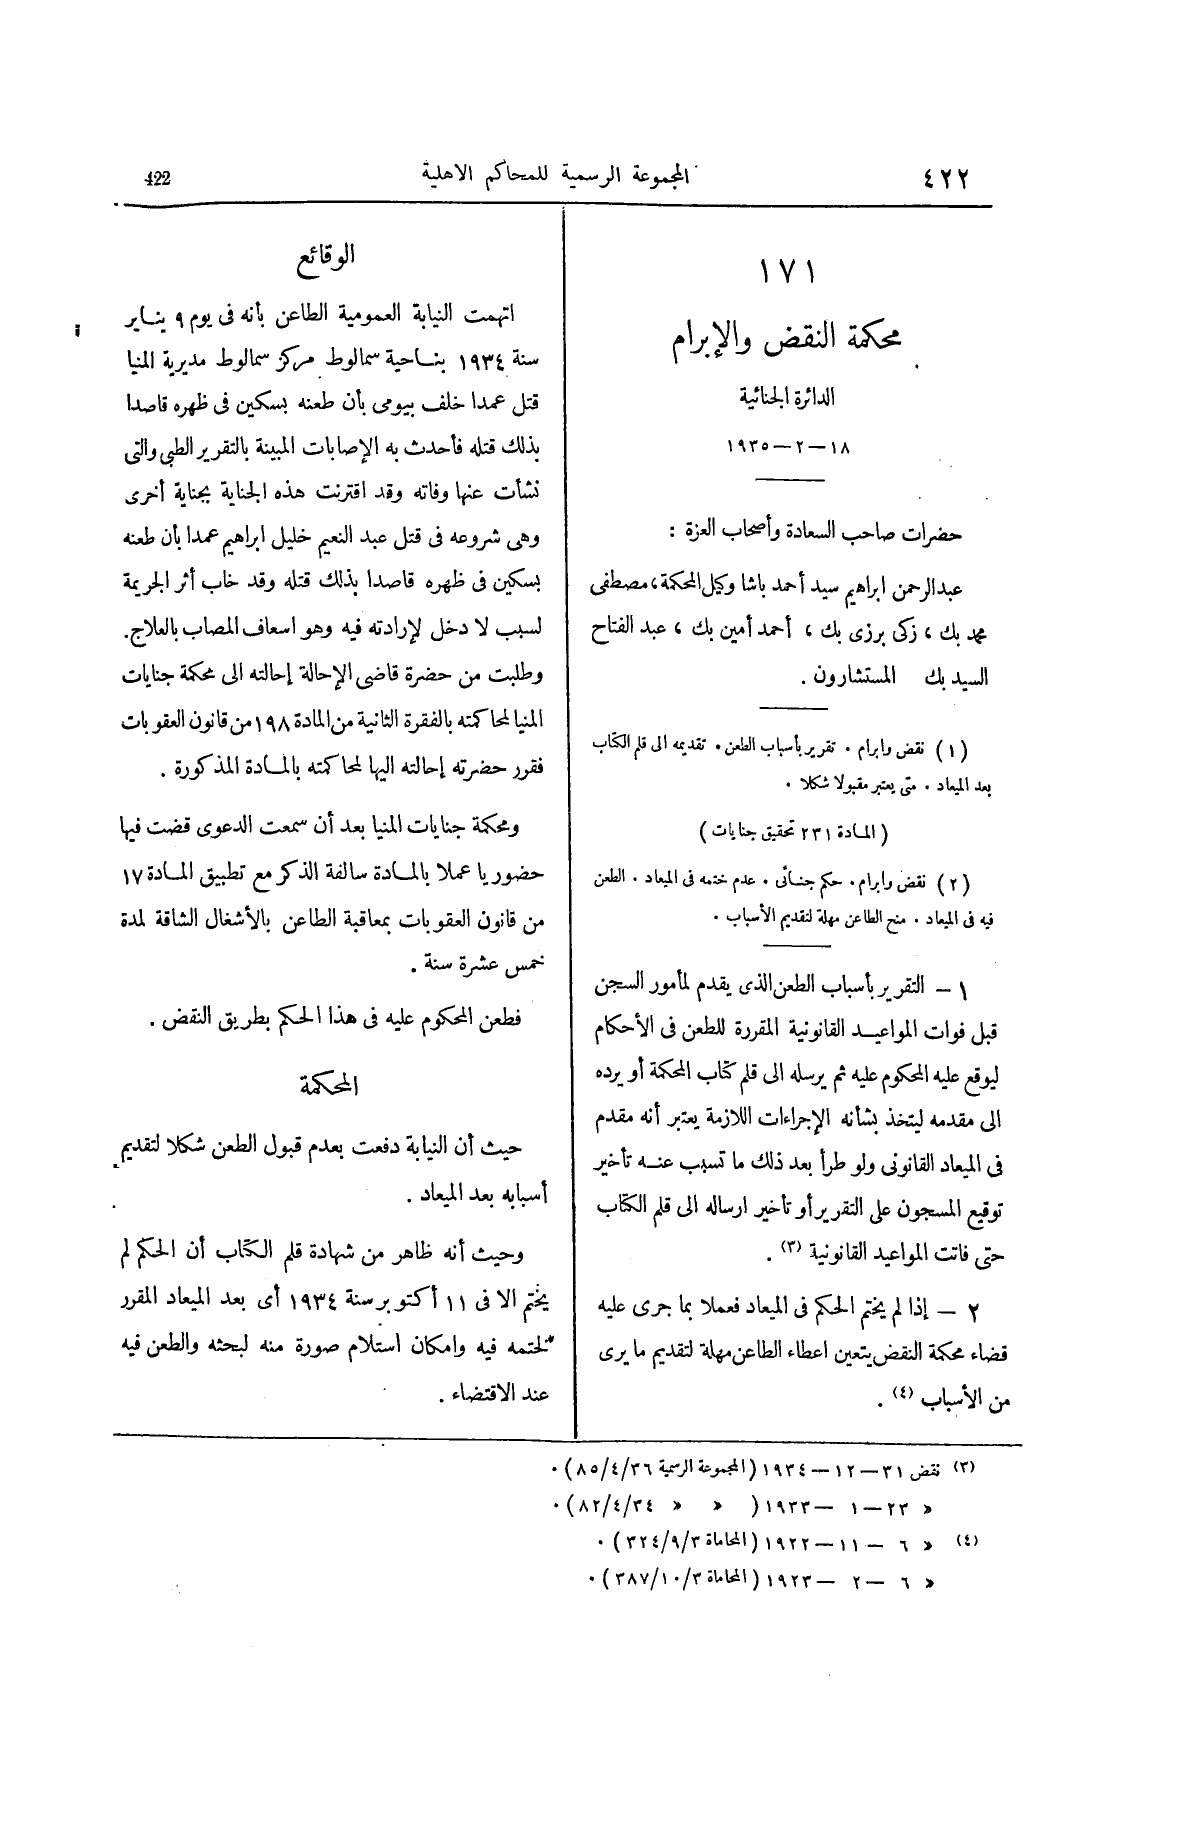 ٤٢٢ المجموعة الرسمية للمحاكم الاهلية 422
١٧١
محكمة النقض والإبرام
الدائرة الجنائية
١٨ – ٢ – ١٩٣٥
حضرات صاحب السعادة وأصحاب العزة :
عبدالرحمن ابراهيم سيد أحمد باشا وكيل المحكمة، مصطفى
محمد بك ، زكى برزى بك ، أحمد أمين بك ، عبد الفتاح
السيد بك المستشارون .
(١) نقض وابرام . تقرير بأسباب الطعن . تقديمه الى قلم الكتاب
بعد الميعاد . متى يعتبر مقبولا شكلا .
(المادة ٢٣١ تحقيق جنايات)
(٢) نقض وابرام . حكم جنائى . عدم ختمه فى الميعاد . الطعن
فيه فى الميعاد . منح الطاعن مهلة لتقديم الأسباب .
١ – التقرير بأسباب الطعن الذى يقدم لمأمور السجن
قبل فوات المواعيد القانونية المقررة للطعن فى الأحكام
ليوقع عليه المحكوم عليه ثم يرسله الى قلم كتاب المحكمة أو يرده
الى مقدمه ليتخذ بشأنه الإجراءات اللازمة يعتبر أنه مقدم
فى الميعاد القانونى ولو طرأ بعد ذلك ما تسبب عنه تأخير
توقيع المسجون على التقرير أو تأخير ارساله الى قلم الكتاب
حتى فاتت المواعيد القانونية (٣) .
٢ – إذا لم يختم الحكم فى الميعاد فعملا بما جرى عليه
قضاء محكمة النقض يتعين اعطاء الطاعن مهلة لتقديم ما يرى
من الأسباب (٤) .
الوقائع
اتهمت النيابة العمومية الطاعن بأنه فى يوم ٩ يناير
سنة ١٩٣٤ بناحية سمالوط مركز سمالوط مديرية المنيا
قتل عمدا خلف بيومى بأن طعنه بسكين فى ظهره قاصدا
بذلك قتله فأحدث به الإصابات المبينة بالتقرير الطبى والتى
نشأت عنها وفاته وقد اقترنت هذه الجناية بجناية أخرى
وهى شروعه فى قتل عبد النعيم خليل ابراهيم عمدا بأن طعنه
بسكين فى ظهره قاصدا بذلك قتله وقد خاب أثر الجريمة
لسبب لا دخل لإرادته فيه وهو اسعاف المصاب بالعلاج.
وطلبت من حضرة قاضى الإحالة إحالته الى محكمة جنايات
المنيا لمحاكمته بالفقرة الثانية من المادة ١٩٨ من قانون العقوبات
فقرر حضرته إحالته اليها لمحاكمته بالمادة المذكورة .
ومحكمة جنايات المنيا بعد أن سمعت الدعوى قضت فيها
حضوريا عملا بالمادة سالفة الذكر مع تطبيق المادة ١٧
من قانون العقوبات بمعاقبة الطاعن بالأشغال الشاقة لمدة
خمس عشرة سنة .
فطعن المحكوم عليه فى هذا الحكم بطريق النقض .
المحكمة
حيث أن النيابة دفعت بعدم قبول الطعن شكلا لتقديم
أسبابه بعد الميعاد .
وحيث أنه ظاهر من شهادة قلم الكتاب أن الحكم لم
يختم الا فى ١١ أكتوبر سنة ١٩٣٤ أى بعد الميعاد المقرر
لختمه فيه وامكان استلام صورة منه لبحثه والطعن فيه
عند الاقتضاء .
(٣) نقض ٣١ – ١٢ – ١٩٣٤ (المجموعة الرسمية ٨٥/٤/٣٦) .
« ٢٣ – ١ – ١٩٣٣ ( « « ٨٢/٤/٣٤) .
(٤) « ٦ – ١١ – ١٩٢٢ (المحاماة ٣٢٤/٩/٣) .
« ٦ – ٢ – ١٩٢٣ (المحاماة ٣٨٧/١٠/٣) .